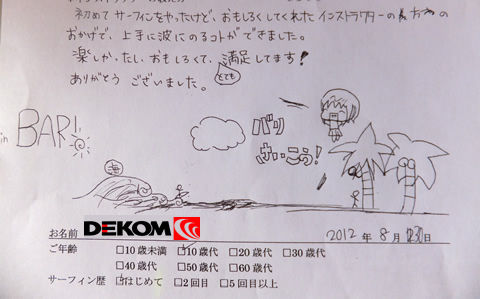 初めて サーフィンをやったけど、おもしろくしてくれた インストラクターの方の
おかげで、上手に波にのるコトができました。
楽しかったし、おもしろくて、満足してます!
とても
ありがとう ございました。
in BALI
バリ
さいこう!
海
お名前 DEKOM
2012 年 8 月 日
ご年齢 □10歳未満 □10歳代 □20歳代 □30歳代
□40歳代 □50歳代 □60歳代
サーフィン歴 □はじめて □2回目 □5回目以上